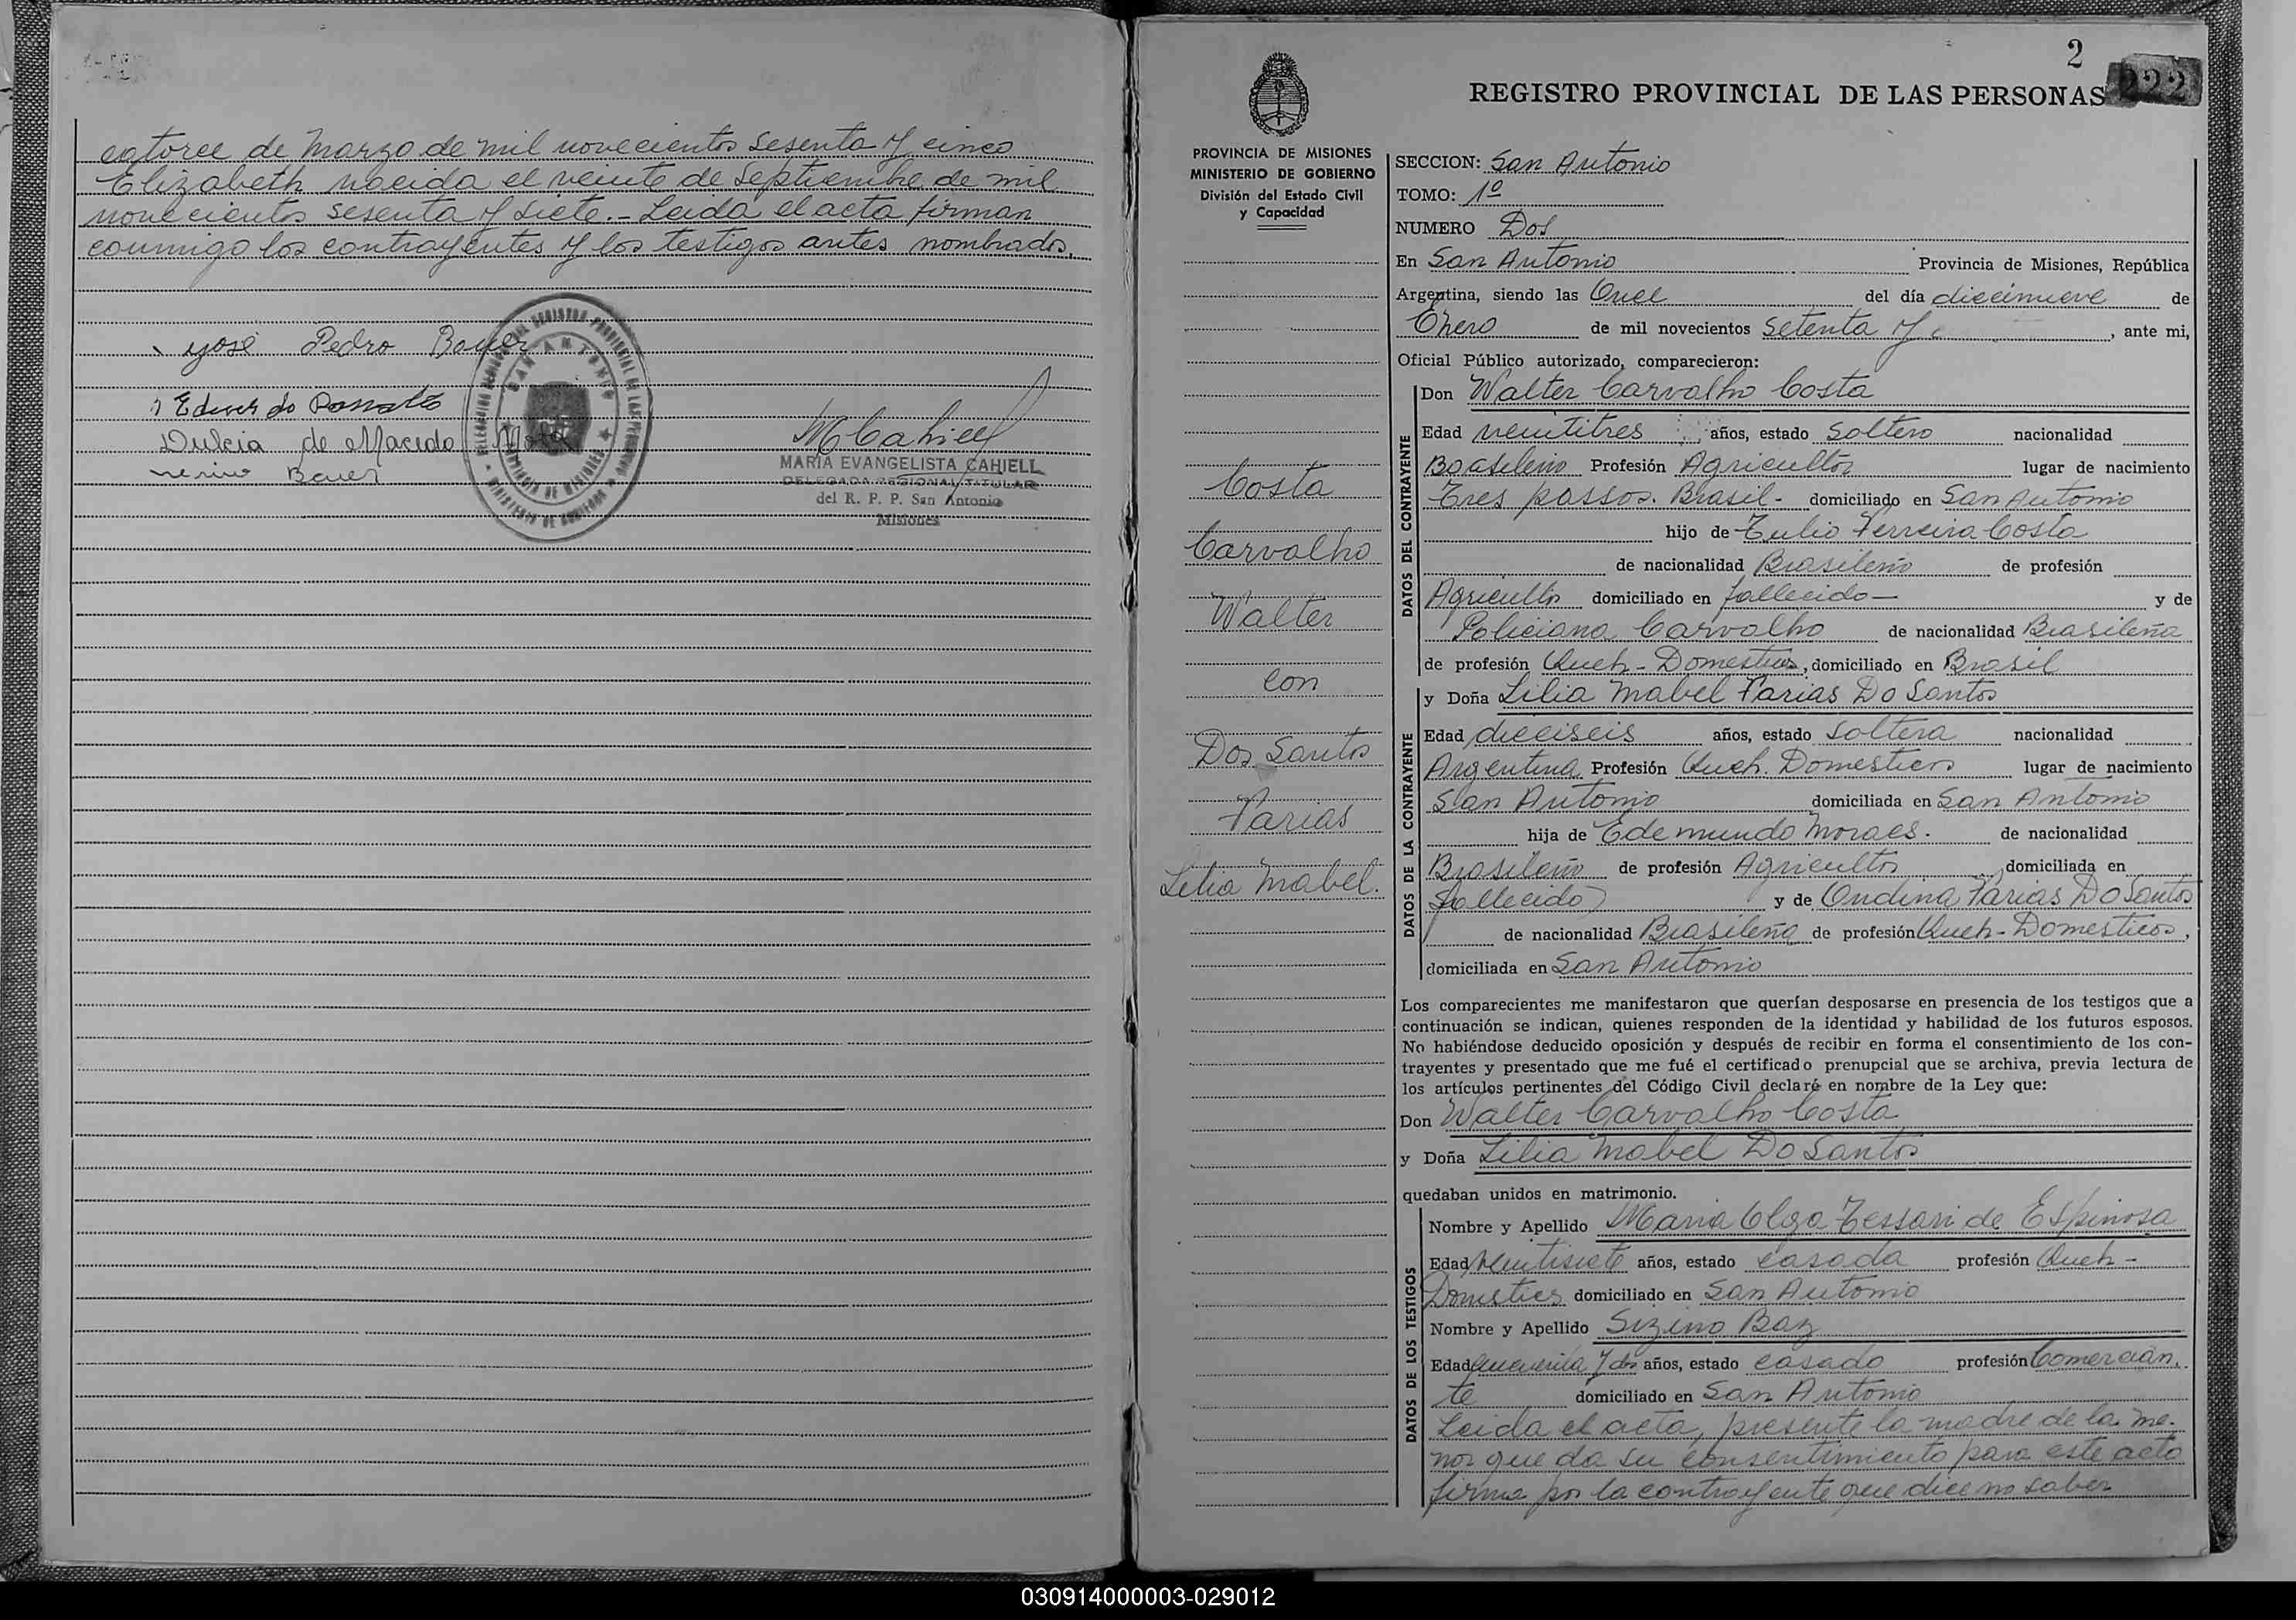 catorce de Marzo de mil novecientos sesenta y cinco
Elizabeth nacida el veinte de Septiembre de mil
novecientos sesenta y siete.- Leida el acta firman
conmigo los contrayentes y los testigos antes nombrados.
José Pedro Bauer
Dulcia de Macedo Mota
Bauer
SAN ANTONIO
MCahiell
MARIA EVANGELISTA CAHIELL
DELEGADA REGIONAL TITULAR
del R. P. P. San Antonio
Misiones
2
222
REGISTRO PROVINCIAL DE LAS PERSONAS
PROVINCIA DE MISIONES
MINISTERIO DE GOBIERNO
División del Estado Civil
y Capacidad
Costa
Carvalho
Walter
con
Dos Santos
Farias
Lilia Mabel.
SECCION: San Antonio
TOMO: 1º
NUMERO Dos
En San Antonio Provincia de Misiones, República
Argentina, siendo las Once del día diecinueve de
Enero de mil novecientos Setenta y , ante mi,
Oficial Público autorizado, comparecieron:
DATOS DEL CONTRAYENTE
Don Walter Carvalho Costa
Edad veintitres años, estado Soltero nacionalidad
Brasileño Profesión Agricultor lugar de nacimiento
Tres passos. Brasil- domiciliado en San Antonio
hijo de Tulio Ferreira Costa
de nacionalidad Brasileño de profesión
Agricultor domiciliado en fallecido— y de
Policiana Carvalho de nacionalidad Brasileña
de profesión Queh-Domesticos, domiciliado en Brasil
DATOS DE LA CONTRAYENTE
y Doña Lilia Mabel Farias Do Santos
Edad dieciseis años, estado Soltera nacionalidad
Argentina Profesión Queh. Domesticos lugar de nacimiento
San Antonio domiciliada en San Antonio
hija de Edemundo Moraes. de nacionalidad
Brasileño de profesión Agricultor domiciliada en
fallecido y de Ondina Farias Do Santos
de nacionalidad Brasileña de profesión Queh-Domesticos,
domiciliada en San Antonio
Los comparecientes me manifestaron que querían desposarse en presencia de los testigos que a
continuación se indican, quienes responden de la identidad y habilidad de los futuros esposos.
No habiéndose deducido oposición y después de recibir en forma el consentimiento de los con-
trayentes y presentado que me fué el certificado prenupcial que se archiva, previa lectura de
los artículos pertinentes del Código Civil declaré en nombre de la Ley que:
Don Walter Carvalho Costa
y Doña Lilia Mabel Do Santos
quedaban unidos en matrimonio.
DATOS DE LOS TESTIGOS
Nombre y Apellido Maria Olga Tessari de Espinosa
Edad Veintisiete años, estado casada profesión Queh-
Domesticos domiciliado en San Antonio
Nombre y Apellido Sizino Baz
Edad cuarenta y dos años, estado casado profesión Comercian.
te domiciliado en San Antonio
Leida el acta, presente la madre de la me-
nor que da su consentimiento para este acto
firma por la contrayente que dice no saber
030914000003-029012